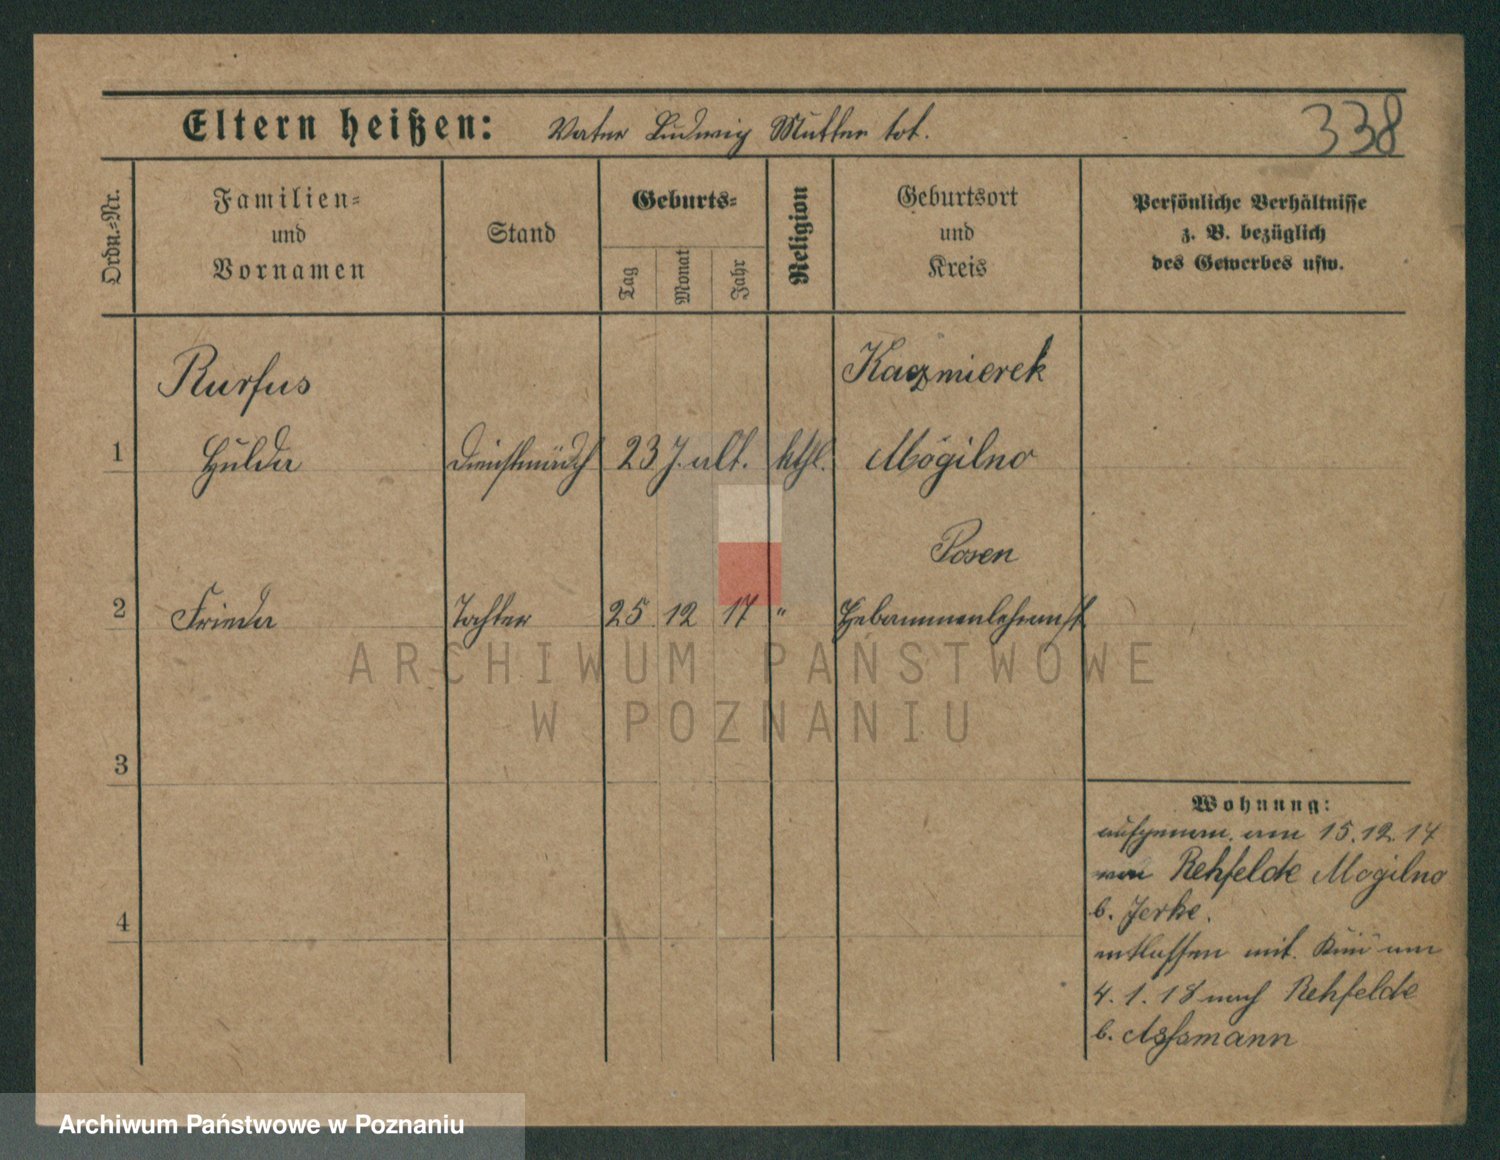 Eltern heißen: Vater Ludwig Mutter tot.
338
Ordn.-Nr.
Familien-
und
Vornamen
Stand
Geburts-
Tag
Monat
Jahr
Religion
Geburtsort
und
Kreis
Persönliche Verhältnisse
z. B. bezüglich
des Gewerbes usw.
Rurfus
Kaczmierek
1 Hulda Dienstmädch 23 J. alt. kthl. Mogilno
Posen
2 Frieda Tochter 25 12 17 " Hebammenlehranst
ARCHIWUM PAŃSTWOWE
W POZNANIU
3
Wohnung:
aufgenom. am 15.12.17
von Rehfelde Mogilno
4
b. Jerke.
entlassen mit Kind am
4.1.18 nach Rehfelde
b. Assmann
Archiwum Państwowe w Poznaniu